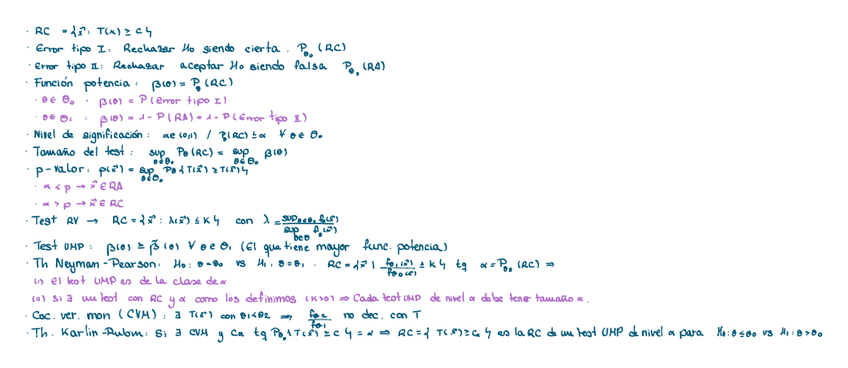 · RC = {x⃗: T(x) ≥ c}
· Error tipo I: Rechazar H0 siendo cierta. Pθ0 (RC)
· Error tipo II: Rechazar aceptar H0 siendo falsa Pθ1 (RA)
· Función potencia: β(θ) = Pθ(RC)
· θ ∈ Θ0 : β(θ) = P(Error tipo I)
· θ ∈ Θ1 : β(θ) = 1 - P(RA) = 1 - P(Error tipo II)
· Nivel de significación: α ∈ (0,1) / Pθ(RC) ≤ α ∀ θ ∈ Θ0
· Tamaño del test: sup θ∈Θ0 Pθ(RC) = sup θ∈Θ0 β(θ)
· p-valor: p(x⃗) = sup θ∈Θ0 Pθ{T(x⃗) ≥ T(x⃗)}
· α < p → x⃗ ∈ RA
· α > p → x⃗ ∈ RC
· Test RV → RC = {x⃗: λ(x⃗) ≤ K} con λ = sup θ∈Θ0 fθ(x⃗) / sup θ∈Θ fθ(x⃗)
· Test UMP: β(θ) ≥ β̃(θ) ∀ θ ∈ Θ1 (El que tiene mayor func. potencia)
· Th Neyman-Pearson: H0: θ=θ0 vs H1: θ=θ1 . RC = {x⃗ | fθ1(x⃗) / fθ0(x⃗) ≥ K} tq α = Pθ0 (RC) ⇒
(i) El test UMP es de la clase de α
(ii) Si ∃ un test con RC y α como los definimos (K>0) ⇒ Cada test UMP de nivel α debe tener tamaño α.
· Coc. ver. mon (CVM): ∃ T(x⃗) con θ1<θ2 ⇒ fθ2 / fθ1 no dec. con T
· Th. Karlin-Rubin: Si ∃ CVM y Cα tq Pθ0{T(x⃗) ≥ C} = α ⇒ RC = { T(x⃗) ≥ Cα } es la RC de un test UMP de nivel α para H0: θ ≤ θ0 vs H1: θ > θ0